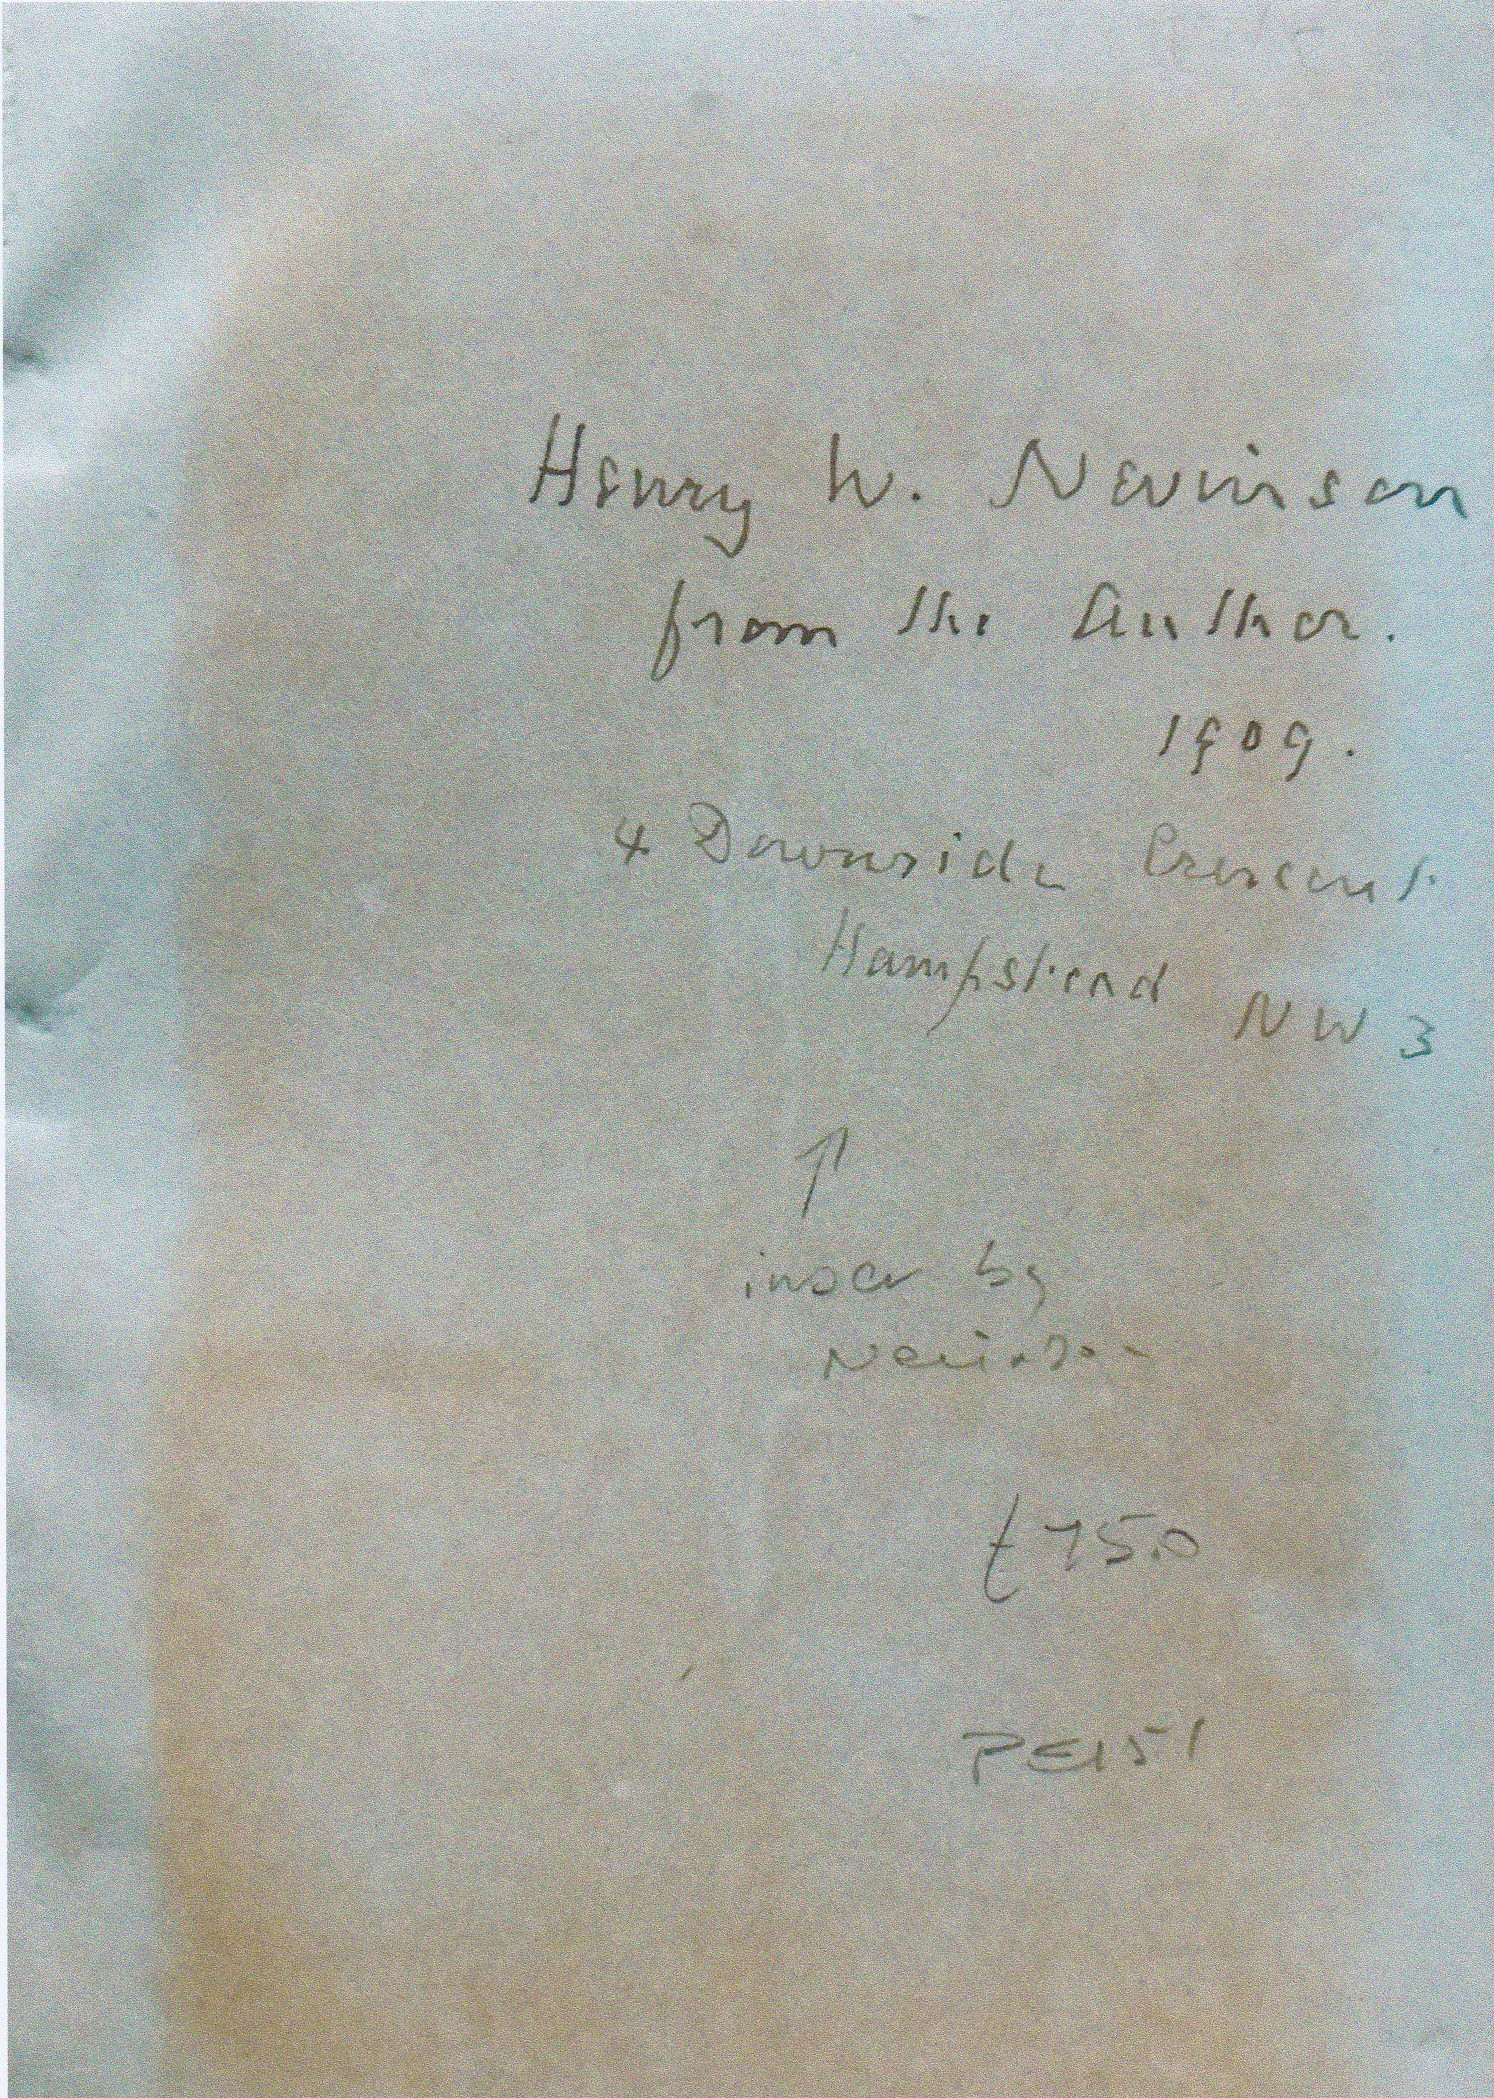 Henry W. Nevinson
from the Author.
1909.
4 Downside Crescent
Hampstead NW 3
↑
inscr by
Nevinson
£75.0
PE151